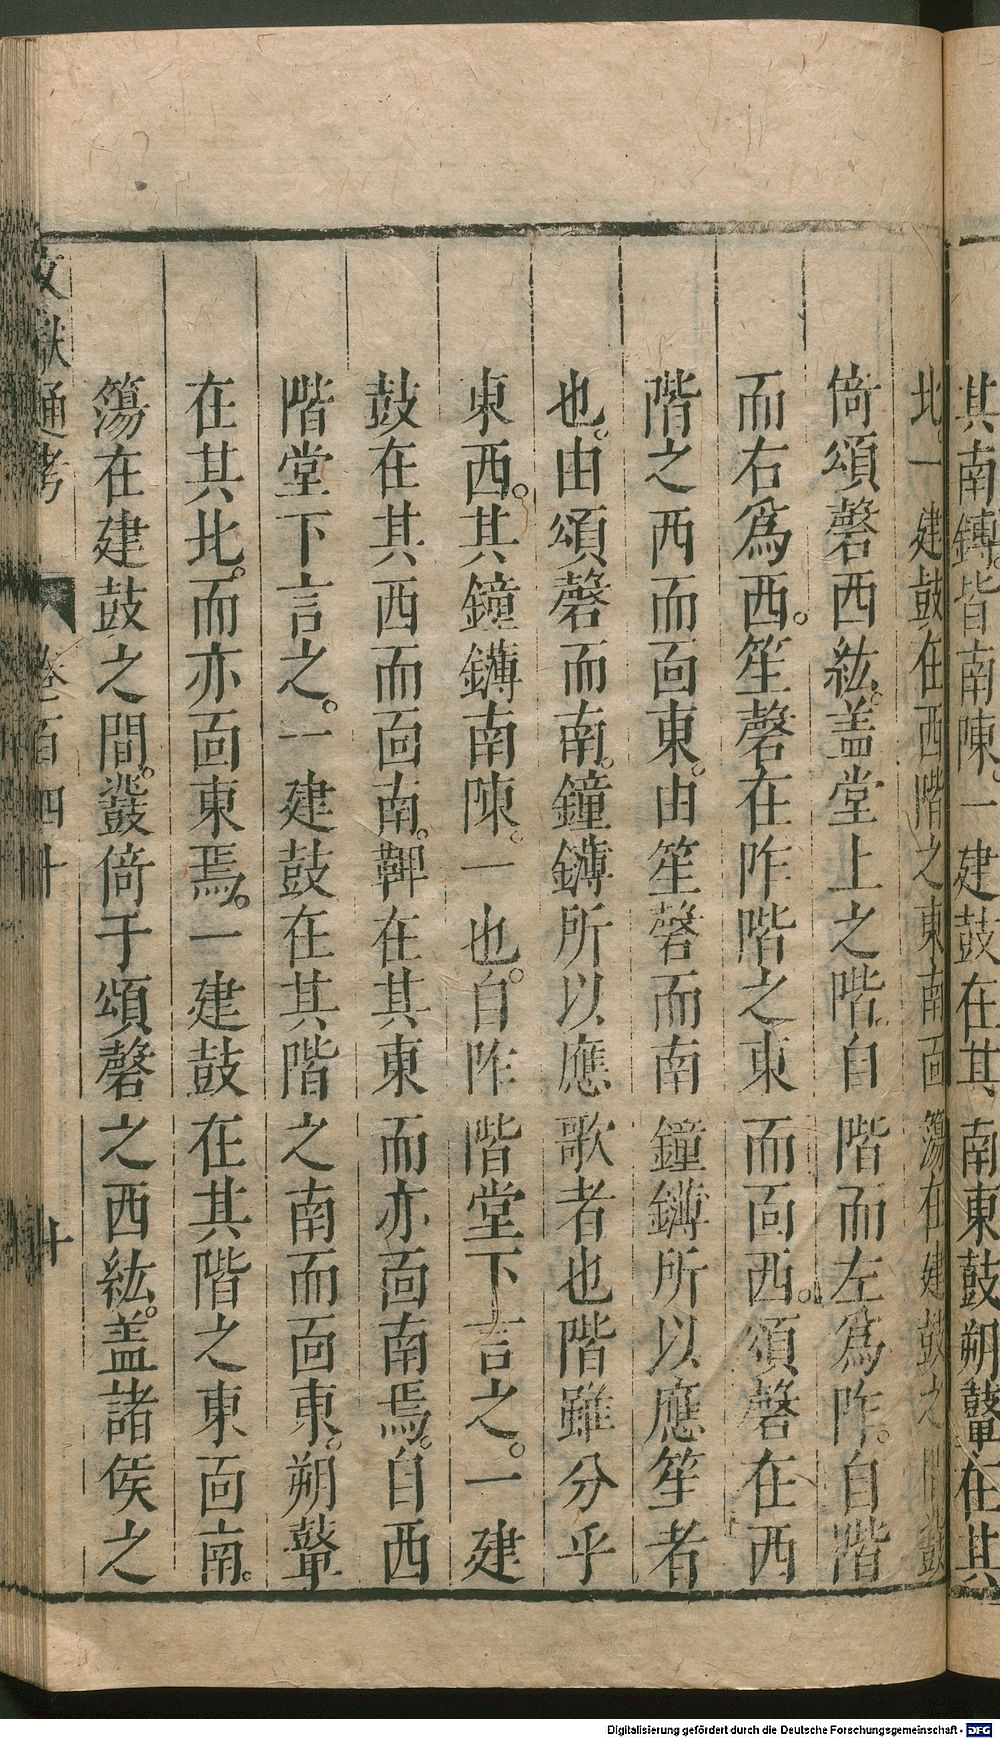 其南鑮皆南陳一建鼓在其南東鼓朔鼙在其
北一建鼓在西階之東南面簜在建鼓之間鼗
倚頌磬西紘盖堂上之階自階而左爲阼自階
而右爲西笙磬在阼階之東而面西頌磬在西
階之西而面東由笙磬而南鐘鑮所以應笙者
也由頌磬而南鐘鑮所以應歌者也階雖分乎
東西其鐘鑮南陳一也自阼階堂下言之一建
鼓在其西而面南鞞在其東而亦面南焉自西
階堂下言之一建鼓在其階之南而面東朔鼙
在其北而亦面東焉一建鼓在其階之東面南
簜在建鼓之間鼗倚于頌磬之西紘盖諸侯之
文獻通考 卷百四十 十
Digitalisierung gefördert durch die Deutsche Forschungsgemeinschaft - DFG